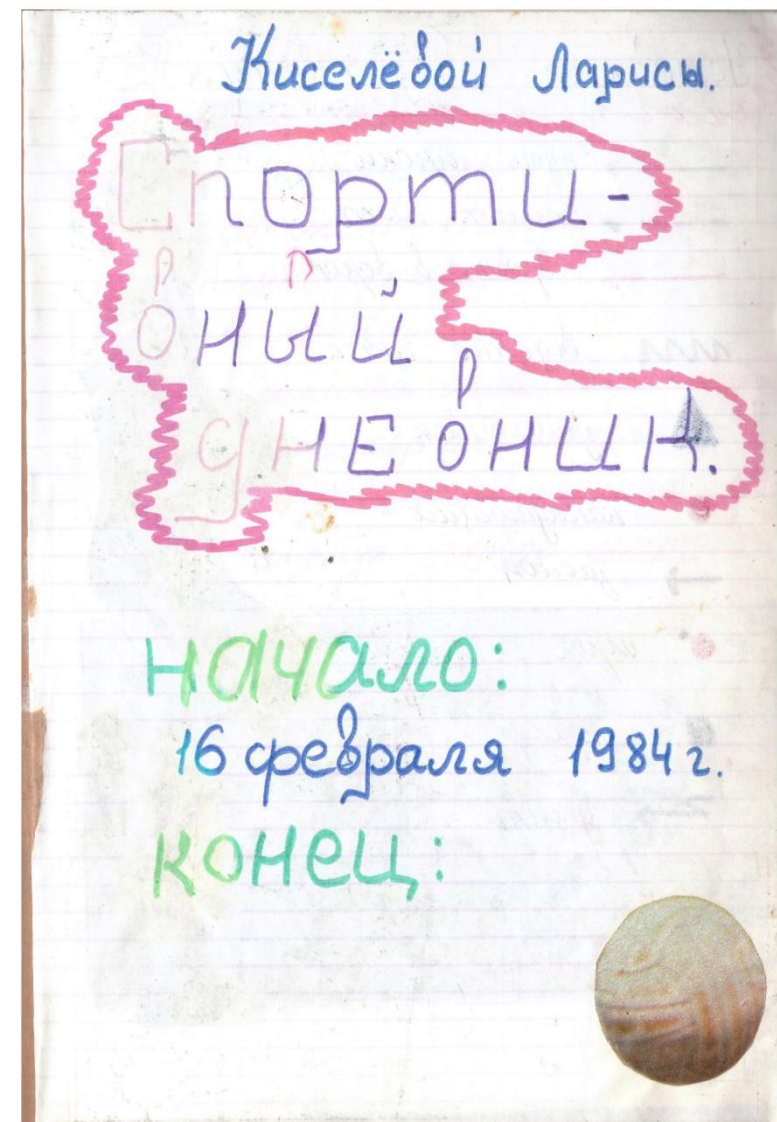 Киселёвой Ларисы.
Спорти-
вный
дневник.
начало:
16 февраля 1984 г.
конец: